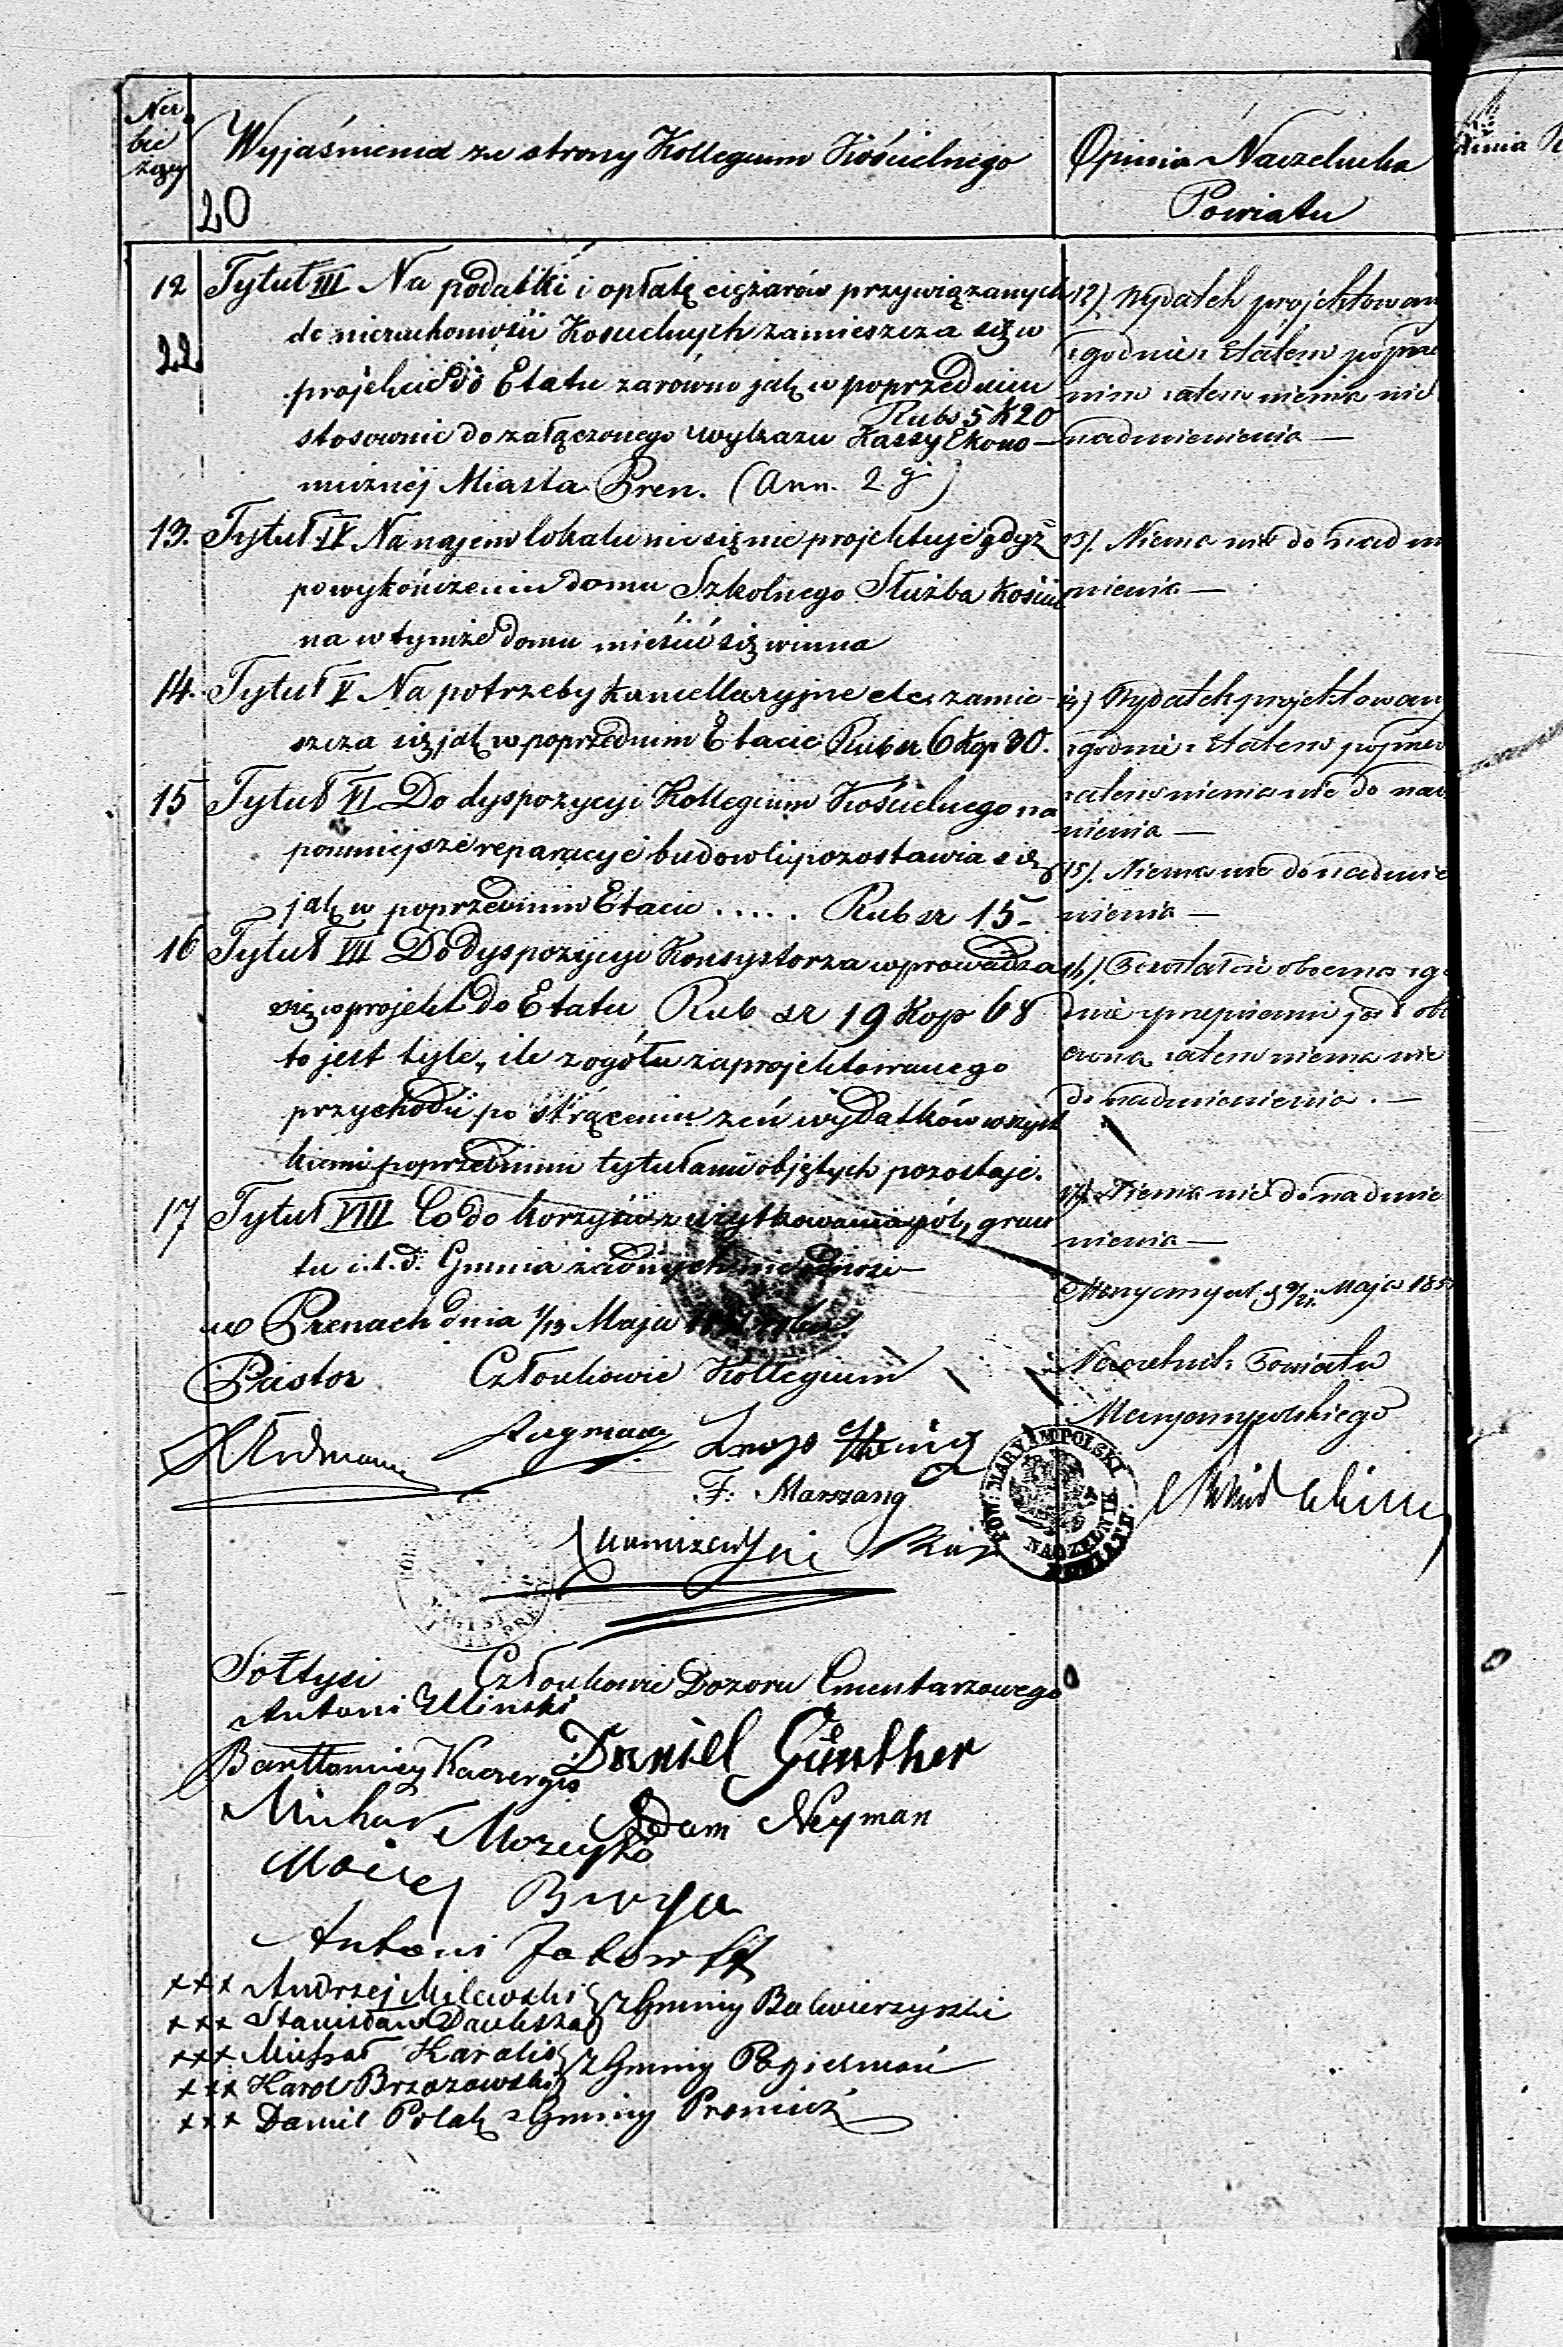 Ner
bie
żący
Wyjaśnienia ze strony Kollegium Kościelnego
20
Opinia Naczelnika
Powiatu
12 Tytuł III Na podatki i opłatę ciężarów przywiązanych
22
do nieruchomości Kościelnych zamieszcza się w
projekcie do Etatu zarówno jak w poprzednim
Rubs 5 k 20
stosownie do załączonego wykazu Kassy Ekono-
micznéj Miasta Pren. (Ann. 2 g)
13. Tytuł IV Na najem lokalu nic się nie projektuje gdyż
po wykończeniu domu Szkolnego Służba Kościel
na w tymże domu mieścić się winna
14. Tytuł V Na potrzeby Kancellaryjne etc. zamie-
szcza się jak w poprzednim Etacie Rub sr 6 kop 30.
15 Tytuł VI Do dyspozycyi Kollegium Kościelnego na
pomniejsze reparacyje budowli pozostawia się
jak w poprzednim Etacie ..... Rub sr 15-
16 Tytuł VII Do dyspozycyi Konsystorza wprowadza
się w projekt do Etatu Rub sr 19 Kop 68
to jest tyle, ile z ogółu zaprojektowanego
przychodu po strąceniu zeń wydatków wszyst
kiemi poprzedniemi tytułami objętych pozostaje.
17 Tytuł VIII Co do korzyści z użytkowania pól, grun
tu i.t.d. Gmina żadnych nie odnosi
w Prenach dnia 1/13 Maja
Pastor Członkowie Kollegium
F: Marszang
12) Wydatek projektowan
zgodnie z Etatem poprze
nim zatem niema nic
nadmienienia —
13). Niema nic do nadm
nienia —
14) Wydatek projektowany
zgodnie z Etatem poprze
zatem niema nic do nad
nienia —
15). Niema nic do nadmie
nienia —
16). Pozostałość obecna zgo
dnie z przepisami jest obl
czona, zatem niema nic
do nadmienienia. —
17). Niema nic do nadmie
nienia —
Maryampol d 9/21 Maja 185
Naczelnik Powiatu
Maryampolskiego
POW. MARYAMPOLSKI
NACZELNIK POWIATU
Sołtysi Członkowie Dozoru Cmentarzowego
Antoni Illinski
Daniel Günther
Bartłomiey Kaczergis
Adam Neyman
Michał Mozeyko
Maciej
Antoni
+++ Andrzej Milewski
+++ Stanisław
z Gminy Balwierzyszki
+++ Michał Karalis
+++ Karol Brzozowski
z Gminy Pogiermoń
+++ Daniel Polak z Gminy Preniuż